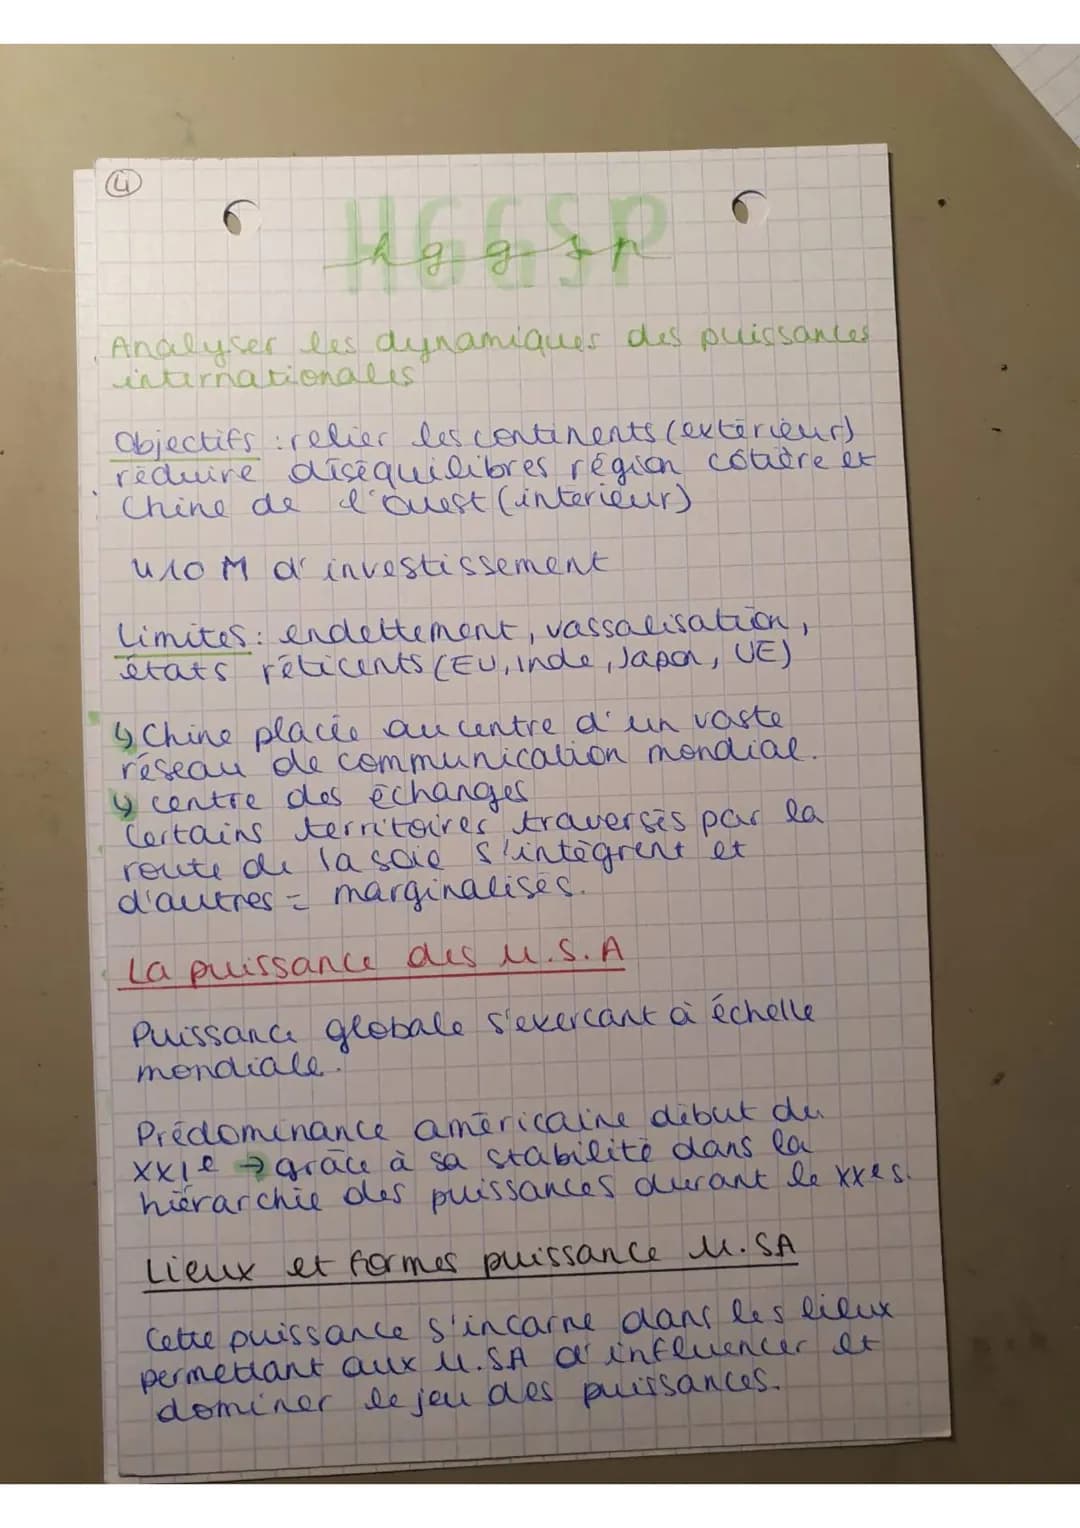 4
HGGSP
hggsp
Analyser les dynamiques des puissances
internationales
Objectifs : relier les continents (extérieur)
réduire déséquilibres région côtière et
Chine de l'ouest (intérieur)
410 M d'investissement
Limites : endettement, vassalisation,
états réticents (EU, Inde, Japon, UE)
↳ Chine placée au centre d'un vaste
réseau de communication mondial.
↳ centre des échanges
Certains territoires traversés par la
route de la soie s'intègrent et
d'autres = marginalisés.
La puissance des U.S.A
Puissance globale s'exercant à échelle
mondiale.
Prédominance américaine début du
XXIe → grâce à sa stabilité dans la
hiérarchie des puissances durant le XXe s.
Lieux et formes puissance U.SA
Cette puissance s'incarne dans les lieux
permettant aux U.SA d'influencer et
dominer le jeu des puissances.